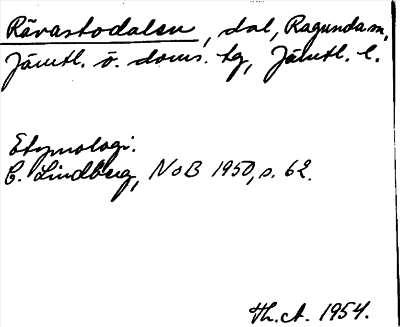 Rävastodalen, dal, Ragunda sn,
Jämtl. ö. doms. tg, Jämtl. l.
Etymologi.
C. Lindberg, NoB 1950, s. 62.
Th. A. 1954.